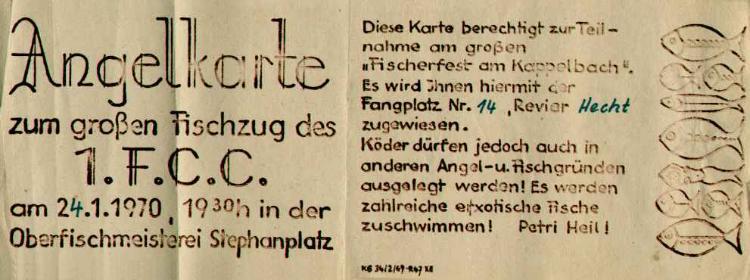 Angelkarte
zum großen Fischzug des
1. F.C.C.
am 24.1.1970, 19³⁰h in der
Oberfischmeisterei Stephanplatz
Diese Karte berechtigt zur Teil-
nahme am großen
"Fischerfest am Kappelbach".
Es wird Ihnen hiermit der
Fangplatz Nr. 14, Revier Hecht
zugewiesen.
Köder dürfen jedoch auch in
anderen Angel-u. Fischgründen
ausgelegt werden! Es werden
zahlreiche e(r)xotische Fische
zuschwimmen! Petri Heil!
KG 34/2/69-R47 XE